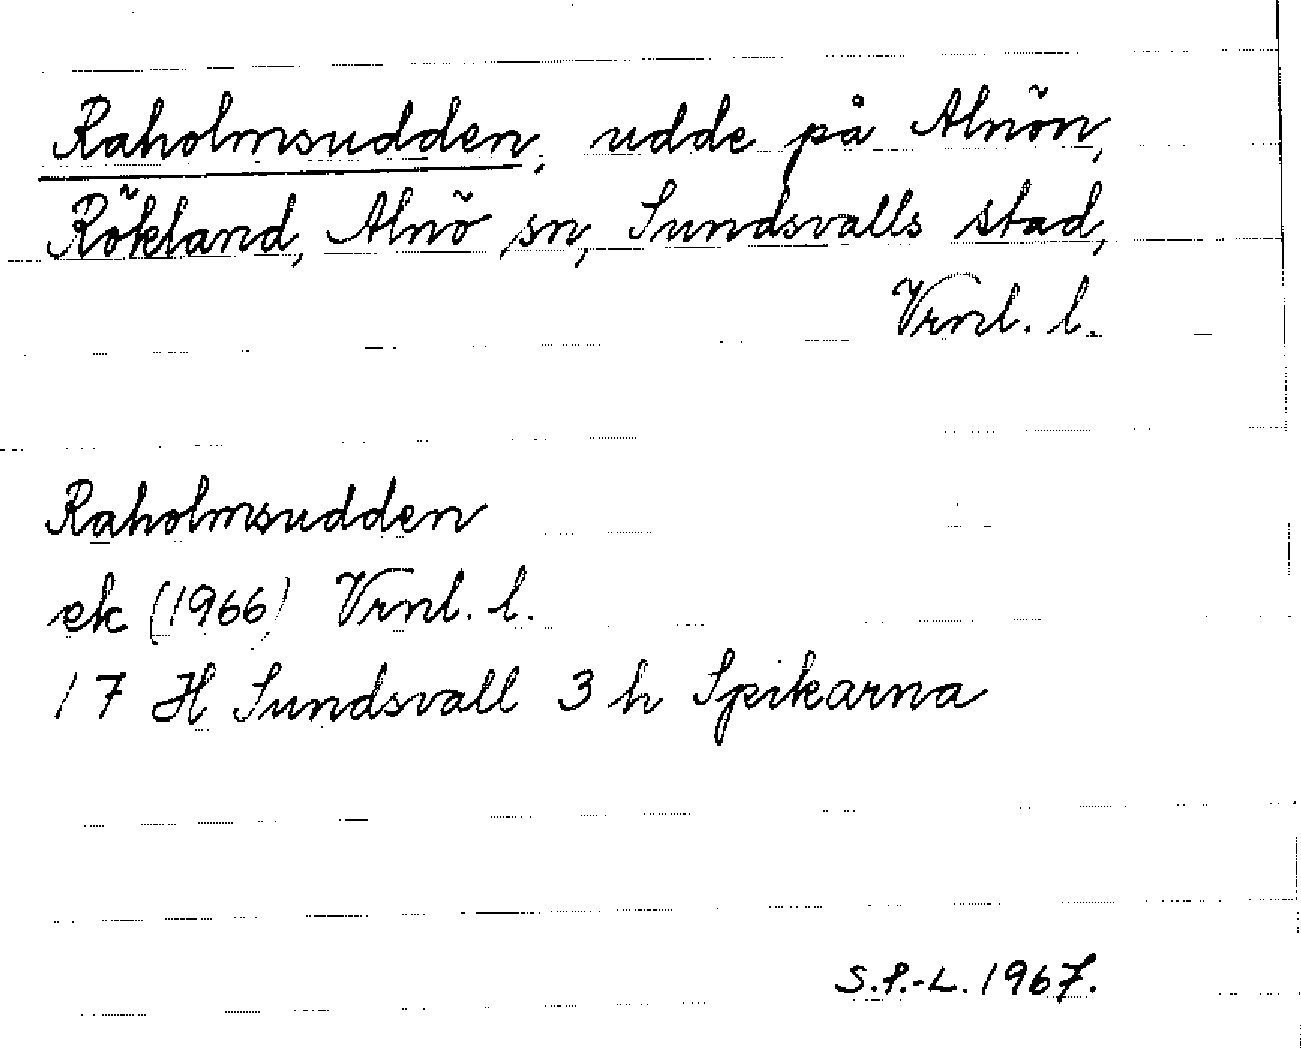 Raholmsudden, udde på Alnön,
Rökland, Alnö sn, Sundsvalls stad,
Vrnl. l.
Raholmsudden
ek (1966) Vrnl. l.
17 H Sundsvall 3 h Spikarna
S.P.-L. 1967.